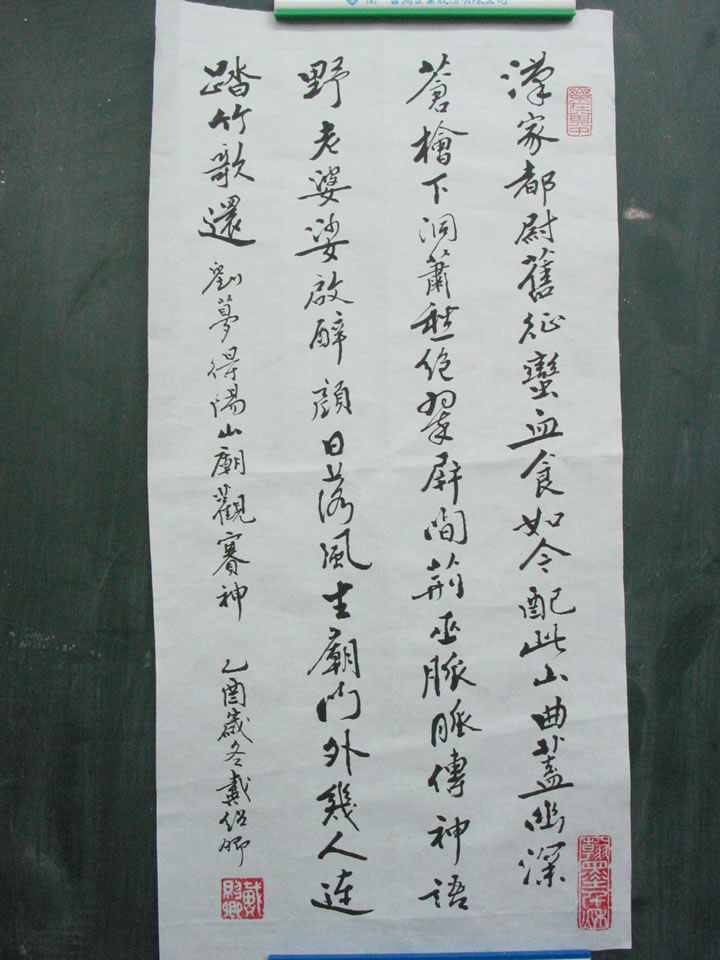 漢家都尉舊征蠻血食如今配此山曲蓋幽深
蒼檜下洞蕭愁絕翠屏間荊巫脈脈傳神語
野老婆娑啟醉顏日落風生廟門外幾人連
踏竹歌還 劉夢得陽山廟觀賽神 乙酉歲冬戴紹卿
戴紹卿